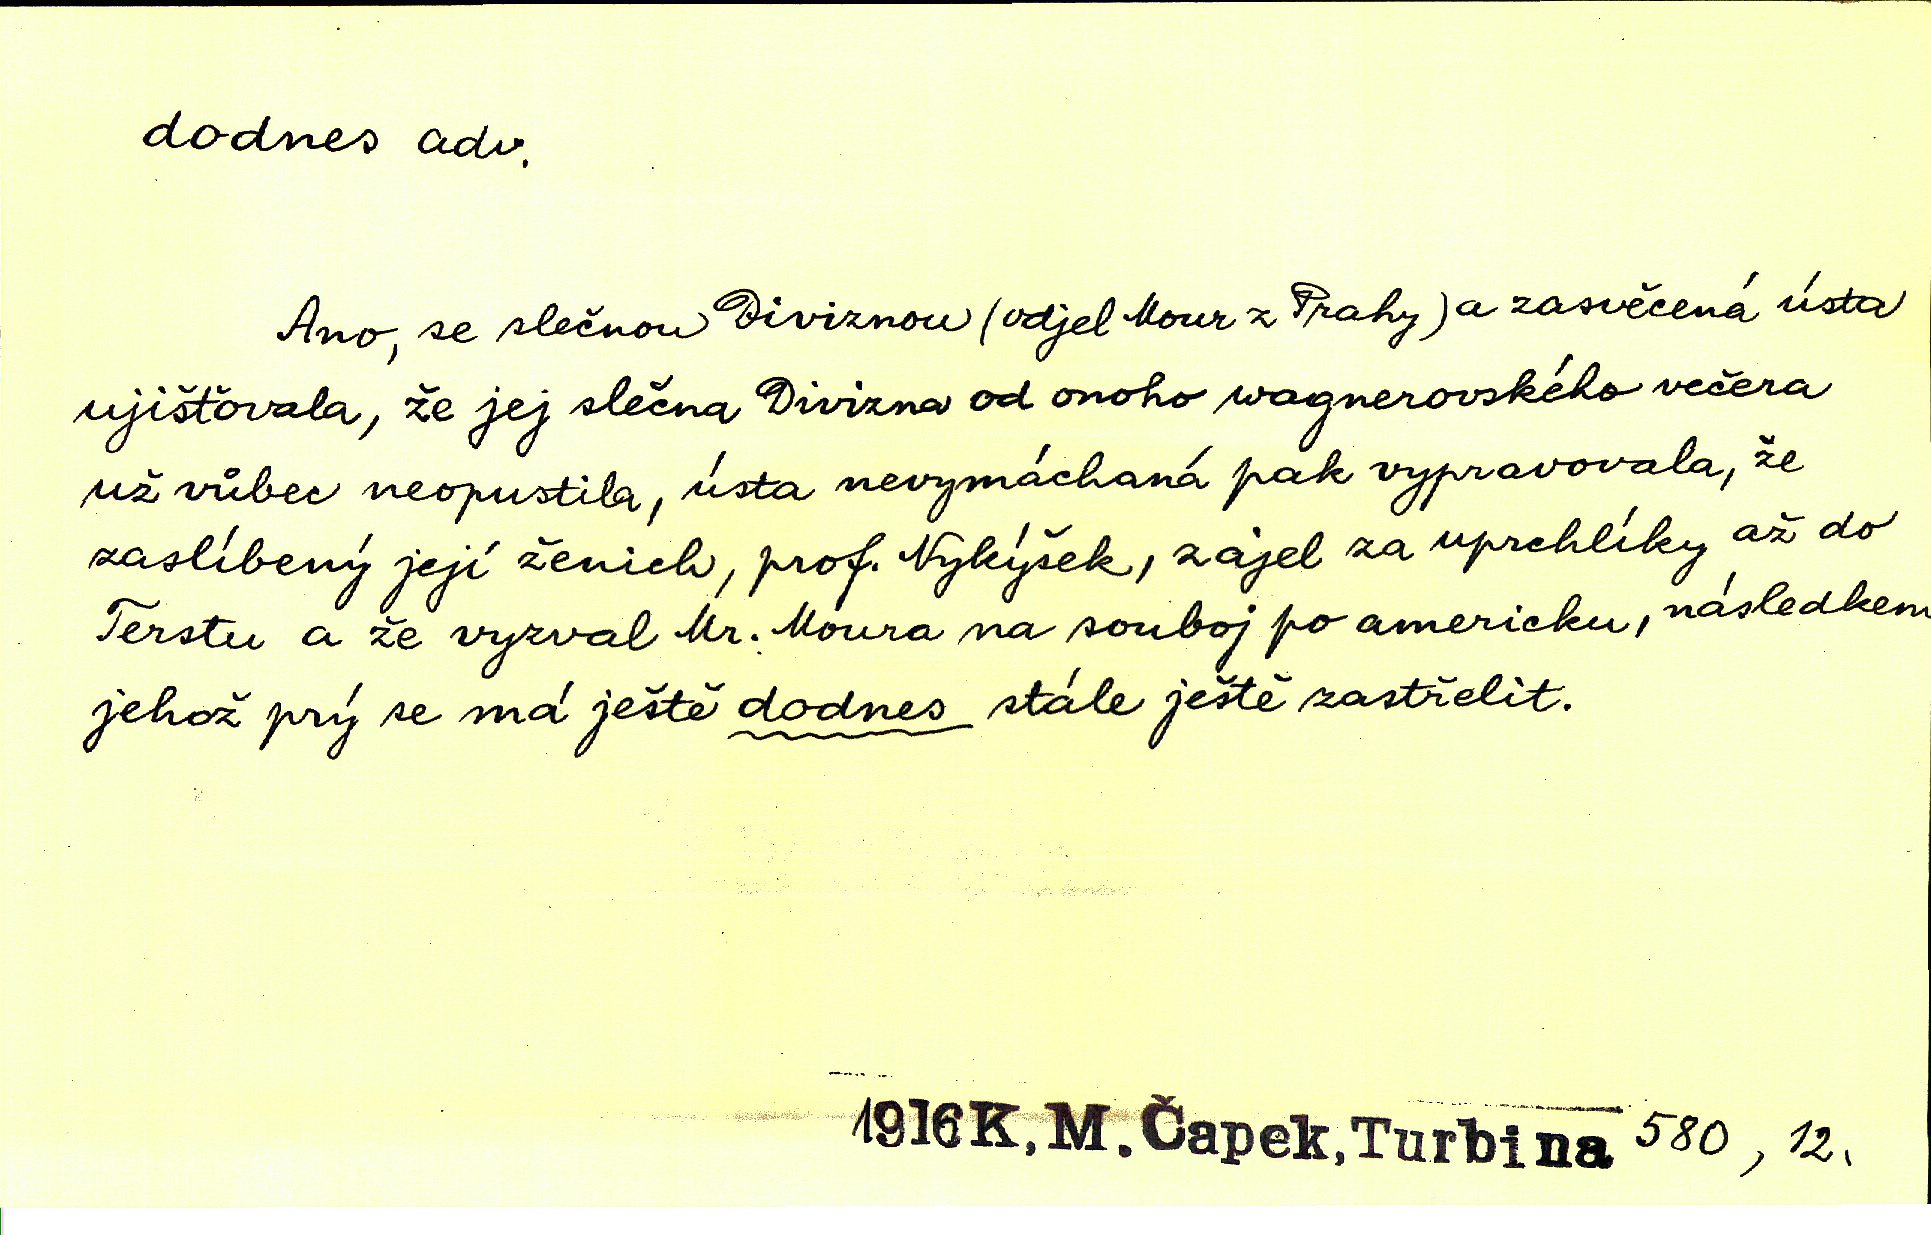 dodnes adv.
Ano, se slečnou Diviznou (odjel Mour z Prahy) a zasvěcená ústa
ujišťovala, že jej slečna Divizna od onoho wagnerovského večera
už vůbec neopustila, ústa nevymáchaná pak vypravovala, že
zaslíbený její ženich, prof. Nykýšek, zajel za uprchlíky až do
Terstu a že vyzval Mr. Moura na souboj po americku, následkem
jehož prý se má ještě dodnes stále ještě zastřelit.
1916 K. M. Čapek, Turbina 580, 12.